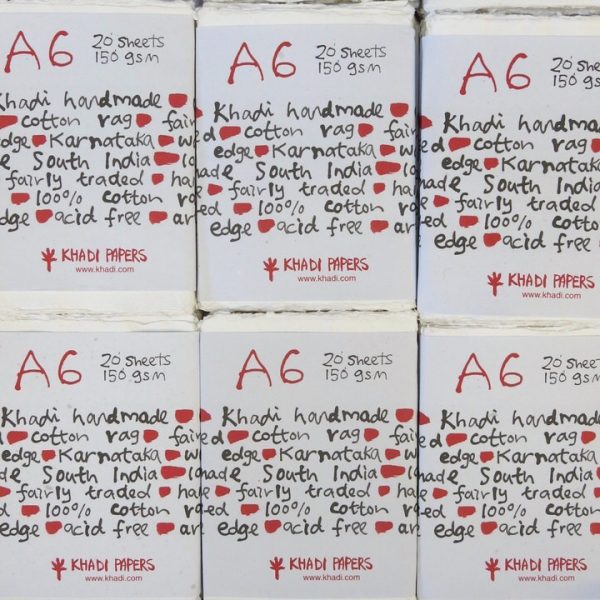 A6 20 sheets
150 gsm
Khadi handmade
cotton rag fair
edge Karnataka
South India
fairly traded
100% cotton
edge acid free
KHADI PAPERS
www.khadi.com
A6 20 sheets
150 gsm
Khadi handmade
cotton rag fair
edge Karnataka
South India
fairly traded
100% cotton
edge acid free
KHADI PAPERS
www.khadi.com
A6 20 sheets
150 gsm
Khadi handmade
cotton rag
edge Karnataka
South India
fairly traded
100% cotton
edge acid free
KHADI PAPERS
www.khadi.com
A6 20 sheets
150 gsm
Khadi handmade
cotton rag fair
edge Karnataka
South India
fairly traded
100% cotton
edge acid free
KHADI PAPERS
www.khadi.com
A6 20 sheets
150 gsm
Khadi handmade
cotton rag fair
edge Karnataka
South India
fairly traded
100% cotton
edge acid free
KHADI PAPERS
www.khadi.com
A6 20 sheets
150 gsm
Khadi handmade
cotton rag
edge Karnataka
South India
fairly traded
100% cotton
edge acid free
KHADI PAPERS
www.khadi.com